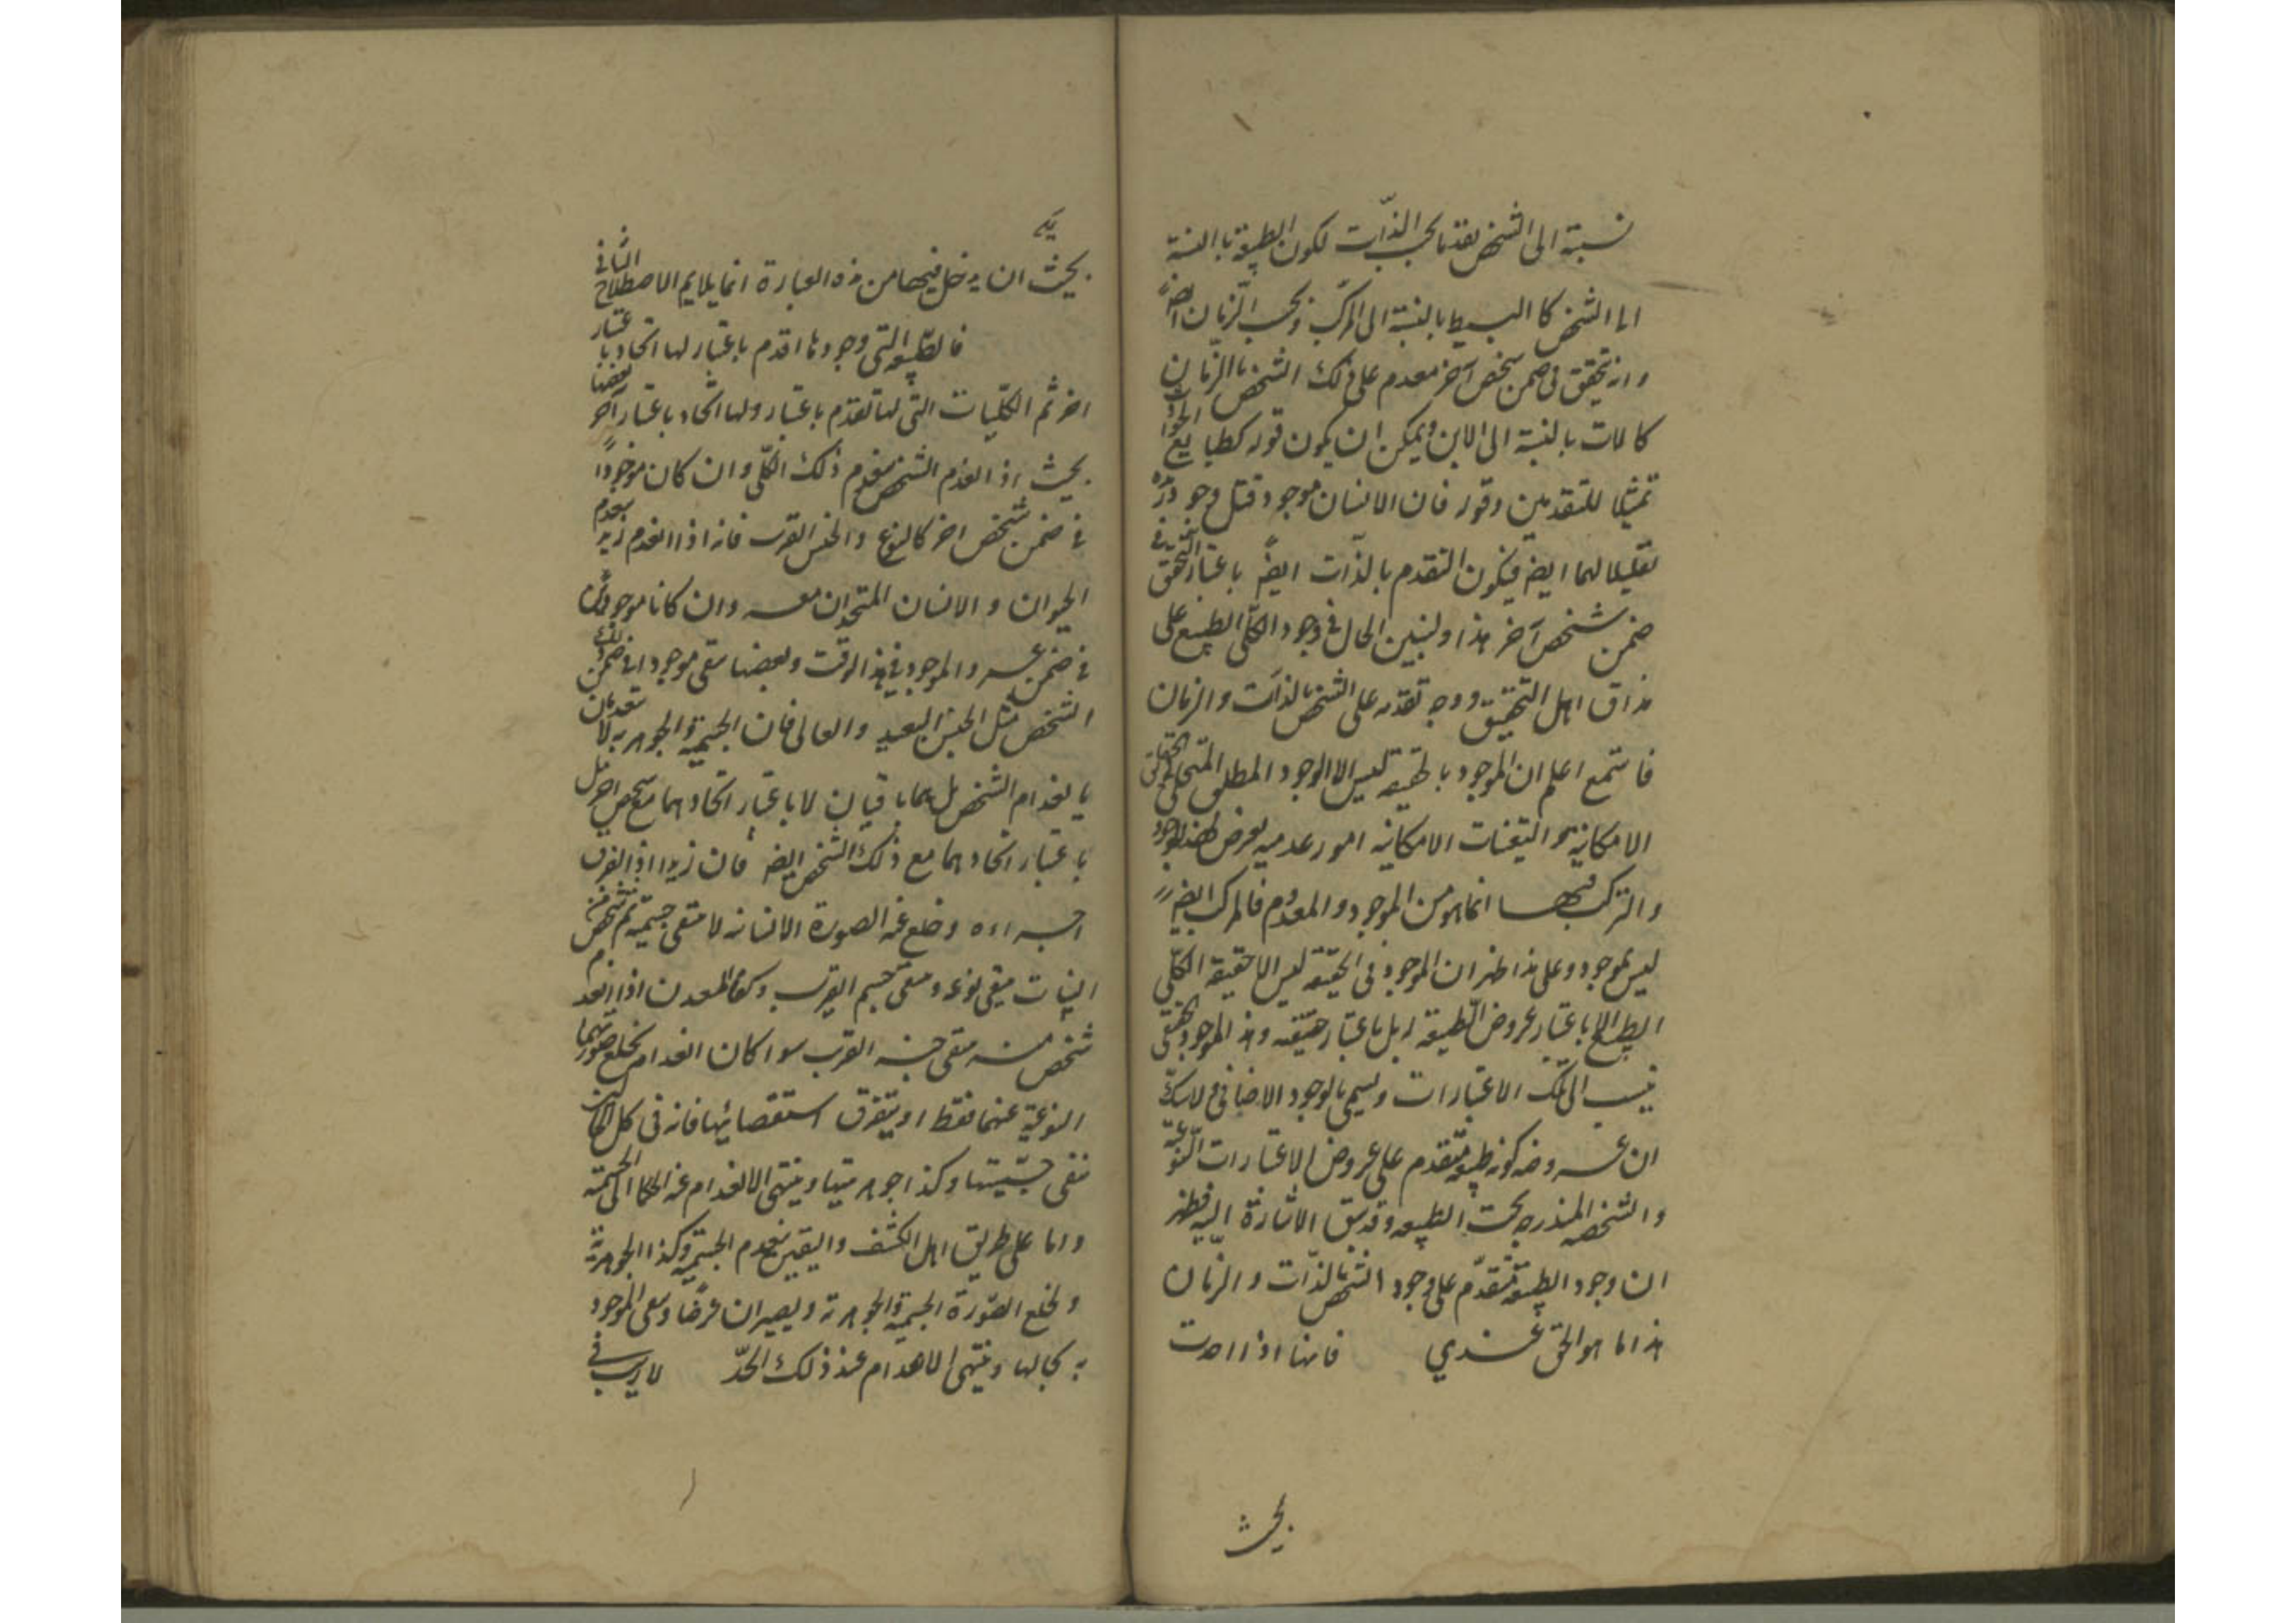 نسبة الى الشخص تقدما بحسب الذات لكون الطبيعة بالنسبة
الى الشخص كالبسيط بالنسبة الى المركب وبحسب الزمان ايضا
وانه تحقق فى ضمن شخص آخر مقدم على ذلك الشخص بالزمان
كالاب بالنسبة الى الابن ويمكن ان يكون قوله كطبايع
تمثيلا للتقدمين وقوله فان الانسان موجود قبل وجود
تعليلا لهما ايضا فيكون التقدم بالذات ايضا باعتبار التحقق فى
ضمن شخص آخر هذا ولنبين الحال فى وجود الكلى الطبيعى على
مذاق اهل التحقيق ووجه تقدمه على الشخص بالذات والزمان
فاستمع اعلم ان الموجود بالحقيقة ليس الا الوجود المطلق
الامكانية والتعينات الامكانية امور عدمية يعرض لهذا الوجود
والتركب فيها انما هو من الموجود والمعدوم فالمركب ايضا
ليس بموجود وعلى هذا ظهر ان الموجود فى الحقيقة ليس الا حقيقة الكلى
الطبيعى لا باعتبار عروض الطبيعة له بل باعتبار حقيقته وهذا الموجود
ينسب الى تلك الاعتبارات ويسمى بالوجود الاضافى فلا شك
ان عروضه كونه طبيعة متقدم على عروض الاعتبارات النوعية
والشخصية المندرجة تحت الطبيعة وقد سبق الاشارة اليه فظهر
ان وجود الطبيعة متقدم على وجود الشخص بالذات والزمان
هذا ما هو الحق عندي فانها اذا اخذت
بحيث
بحيث ان يدخل فيها من هذه العبارة انما يلايم الاصطلاح الثانى
فالطبيعة التى وجودها اقدم باعتبار لها اتحاد باعتبار
اخر ثم الكليات التى لها تقدم باعتبار ولها اتحاد باعتبار آخر بعضها
بحيث اذا انعدم الشخص ينعدم ذلك الكلى وان كان موجودا
فى ضمن شخص اخر كالنوع والجنس القريب فانه اذا انعدم زيد ينعدم
الحيوان والانسان المتحدان معه وان كانا موجودين
فى ضمن عمرو الموجود فى هذا الوقت وبعضها يبقى موجودا فى ضمن ذلك
الشخص مثل الجنس البعيد والعالى فان الجسمية والجوهرية لا تنعدمان
بانعدام الشخص بل هما باقيان لا باعتبار اتحادهما مع شخص اخر بل
باعتبار اتحادهما مع ذلك الشخص ايضا فان زيدا اذا تفرق
اجزاءه وخلع عنه الصورة الانسانية لا تنتفى جسميته ثم شخص من
النبات ينتفى نوعه وينتفى جسم القريب وكذا المعدن اذا انعدم
شخص منه ينتفى جنسه القريب سواء كان انعدامه بخلع صورتهما
النوعية عنهما فقط او بتفرق استقصائها فانه فى كل
تبقى جسميتها وكذا جوهريتها وينتهى الانعدام عند الحكماء الى الجسمية
واما على طريق اهل الكشف واليقين ينعدم الجسمية وكذا الجوهرية
ولخلع الصورة الجسمية والجوهرية ويصيران عرضا ويبقى الوجود
بكمالها وينتهى الانعدام عند ذلك الحد لا ريب فى